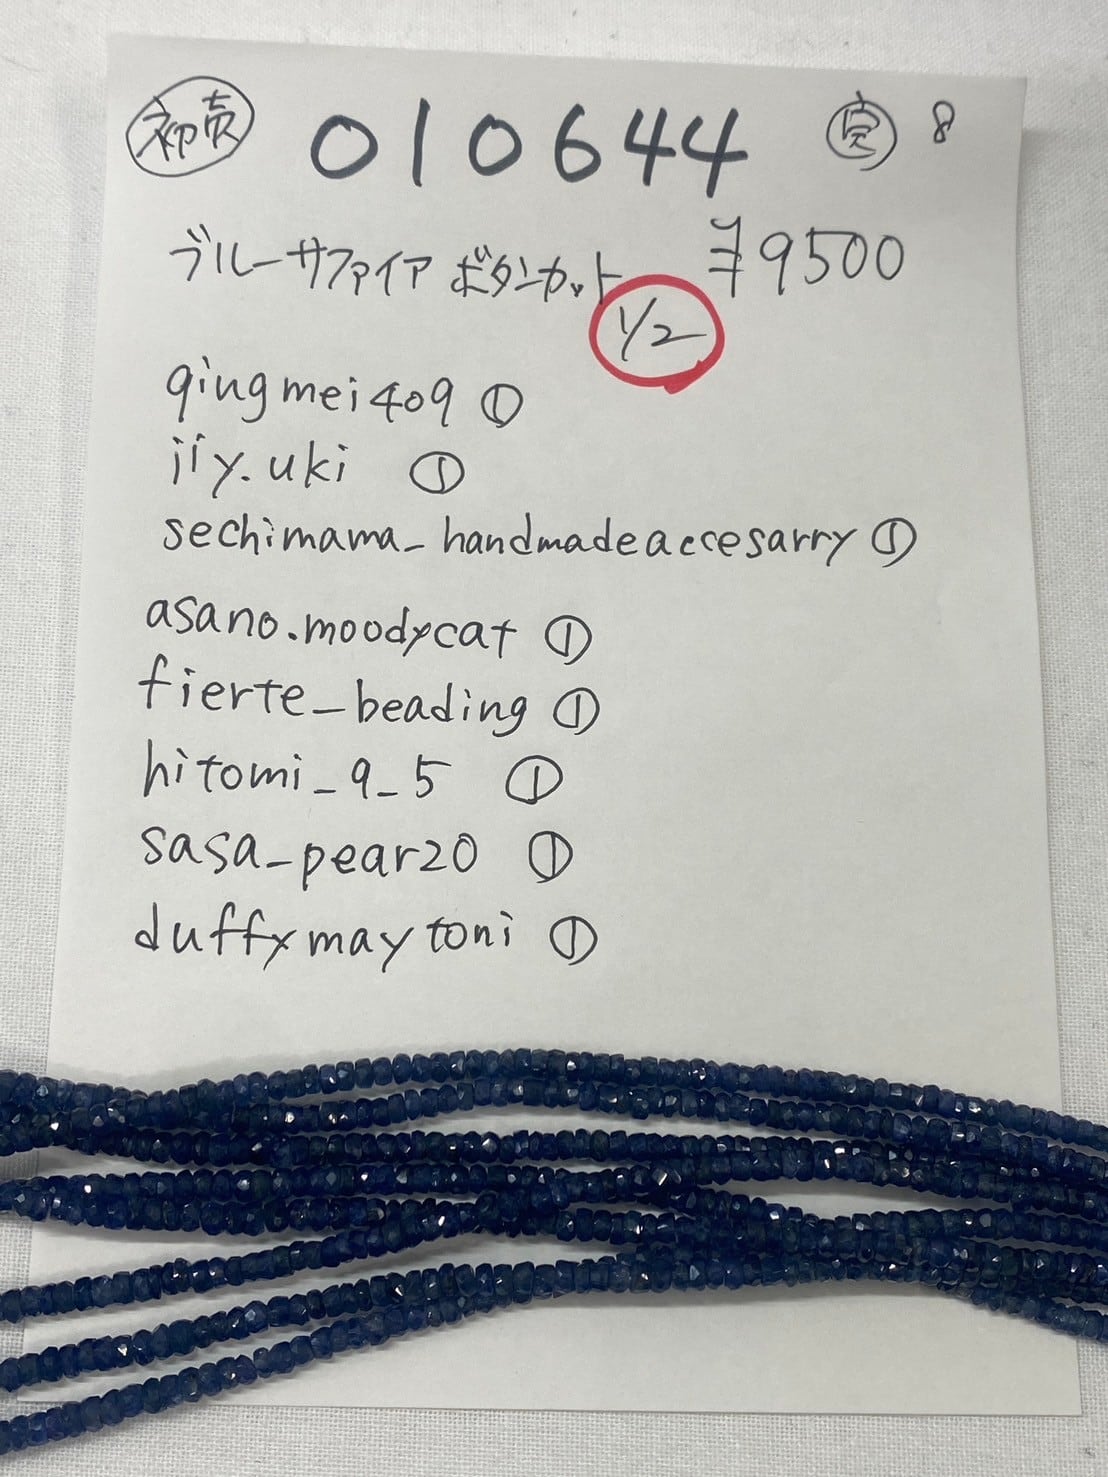 初売 010644 完 8
ブルーサファイア ボタンカット ¥9500
1/2
qingmei409 ①
jiy.uki ①
sechimama_handmadeaccesarry ①
asano.moodycat ①
fierte_beading ①
hitomi_9_5 ①
sasa_pear20 ①
duffymaytoni ①